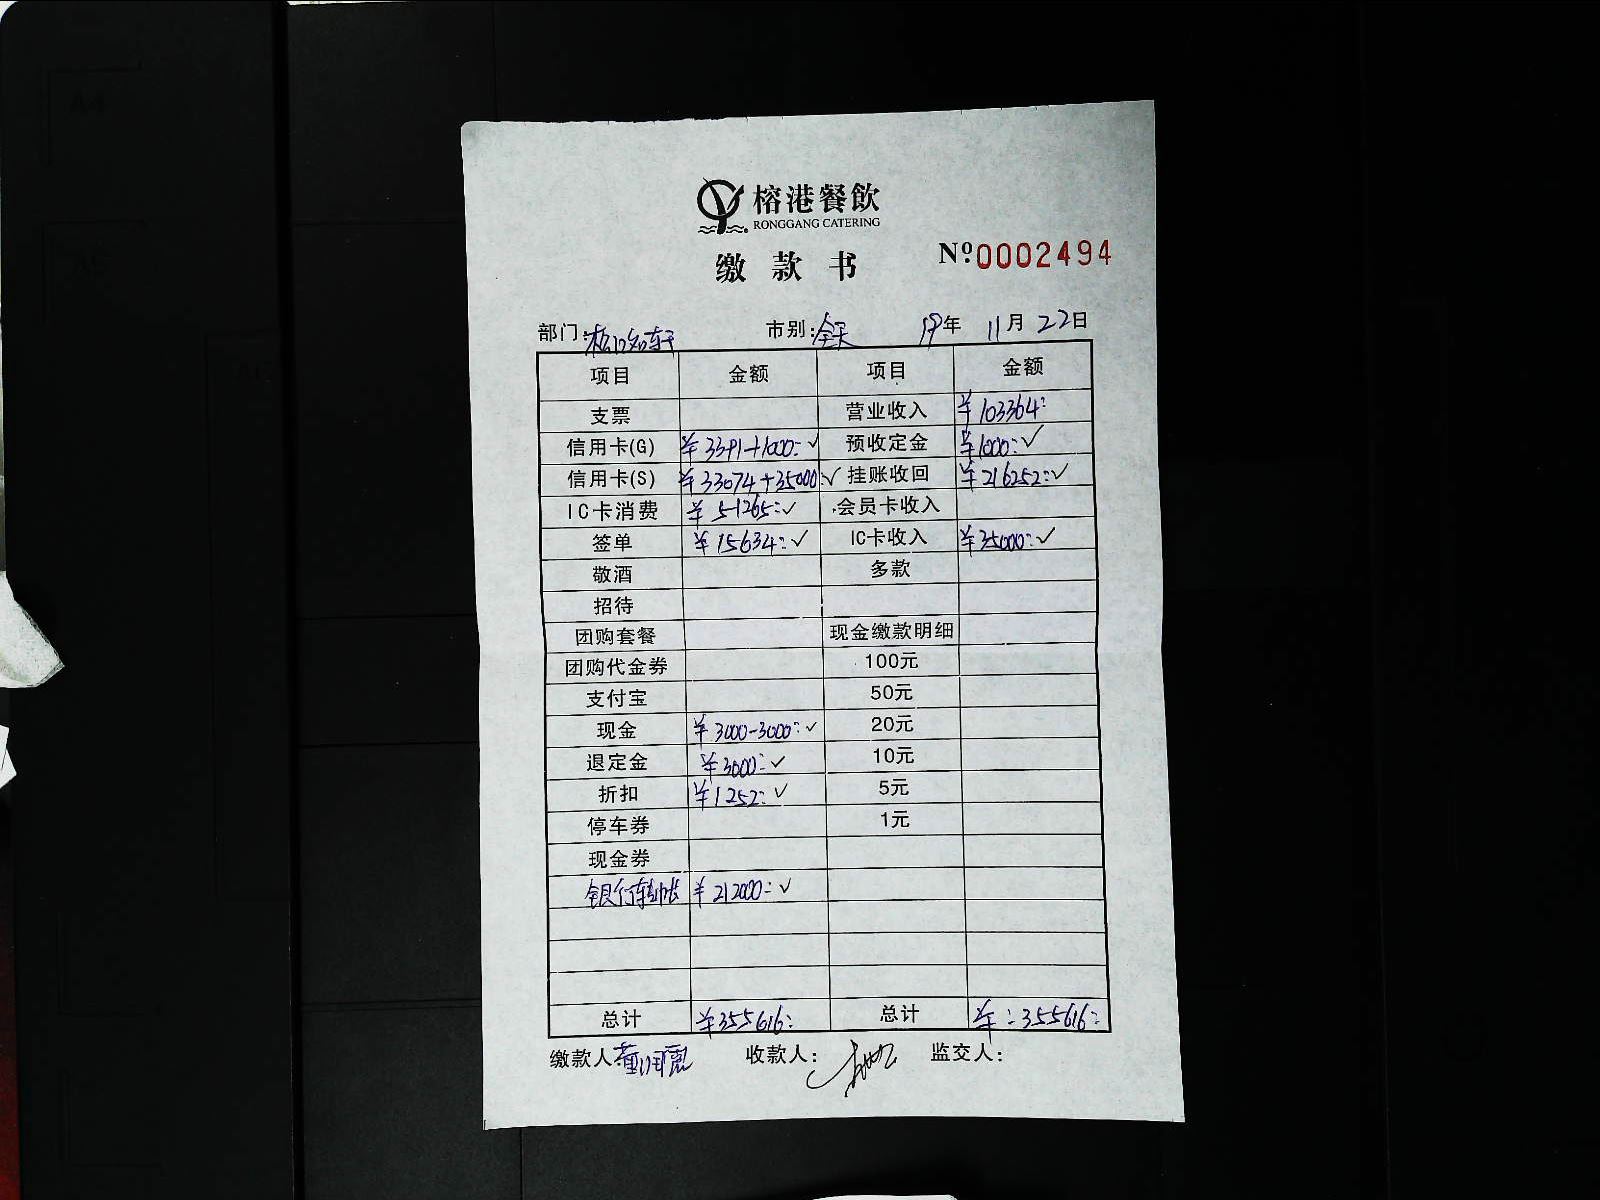 榕港餐飲
RONGGANG CATERING
缴款书
Nº:0002494
部门: 市别:全天 19年 11月 22日
项目 金额 项目 金额
支票 营业收入 ¥103364:
信用卡(G) ¥3391+1000:✓ 预收定金 ¥1000:✓
信用卡(S) ¥33074+35000:✓ 挂账收回 ¥216252:✓
IC卡消费 ¥51265:✓ 会员卡收入
签单 ¥15634:✓ IC卡收入 ¥35000:✓
敬酒 多款
招待
团购套餐 现金缴款明细
团购代金券 100元
支付宝 50元
现金 ¥3000-3000:✓ 20元
退定金 ¥3000:✓ 10元
折扣 ¥1252:✓ 5元
停车券 1元
现金券
银行转帐 ¥212000:✓
总计 ¥355616: 总计 ¥:355616:
缴款人: 收款人: 监交人: